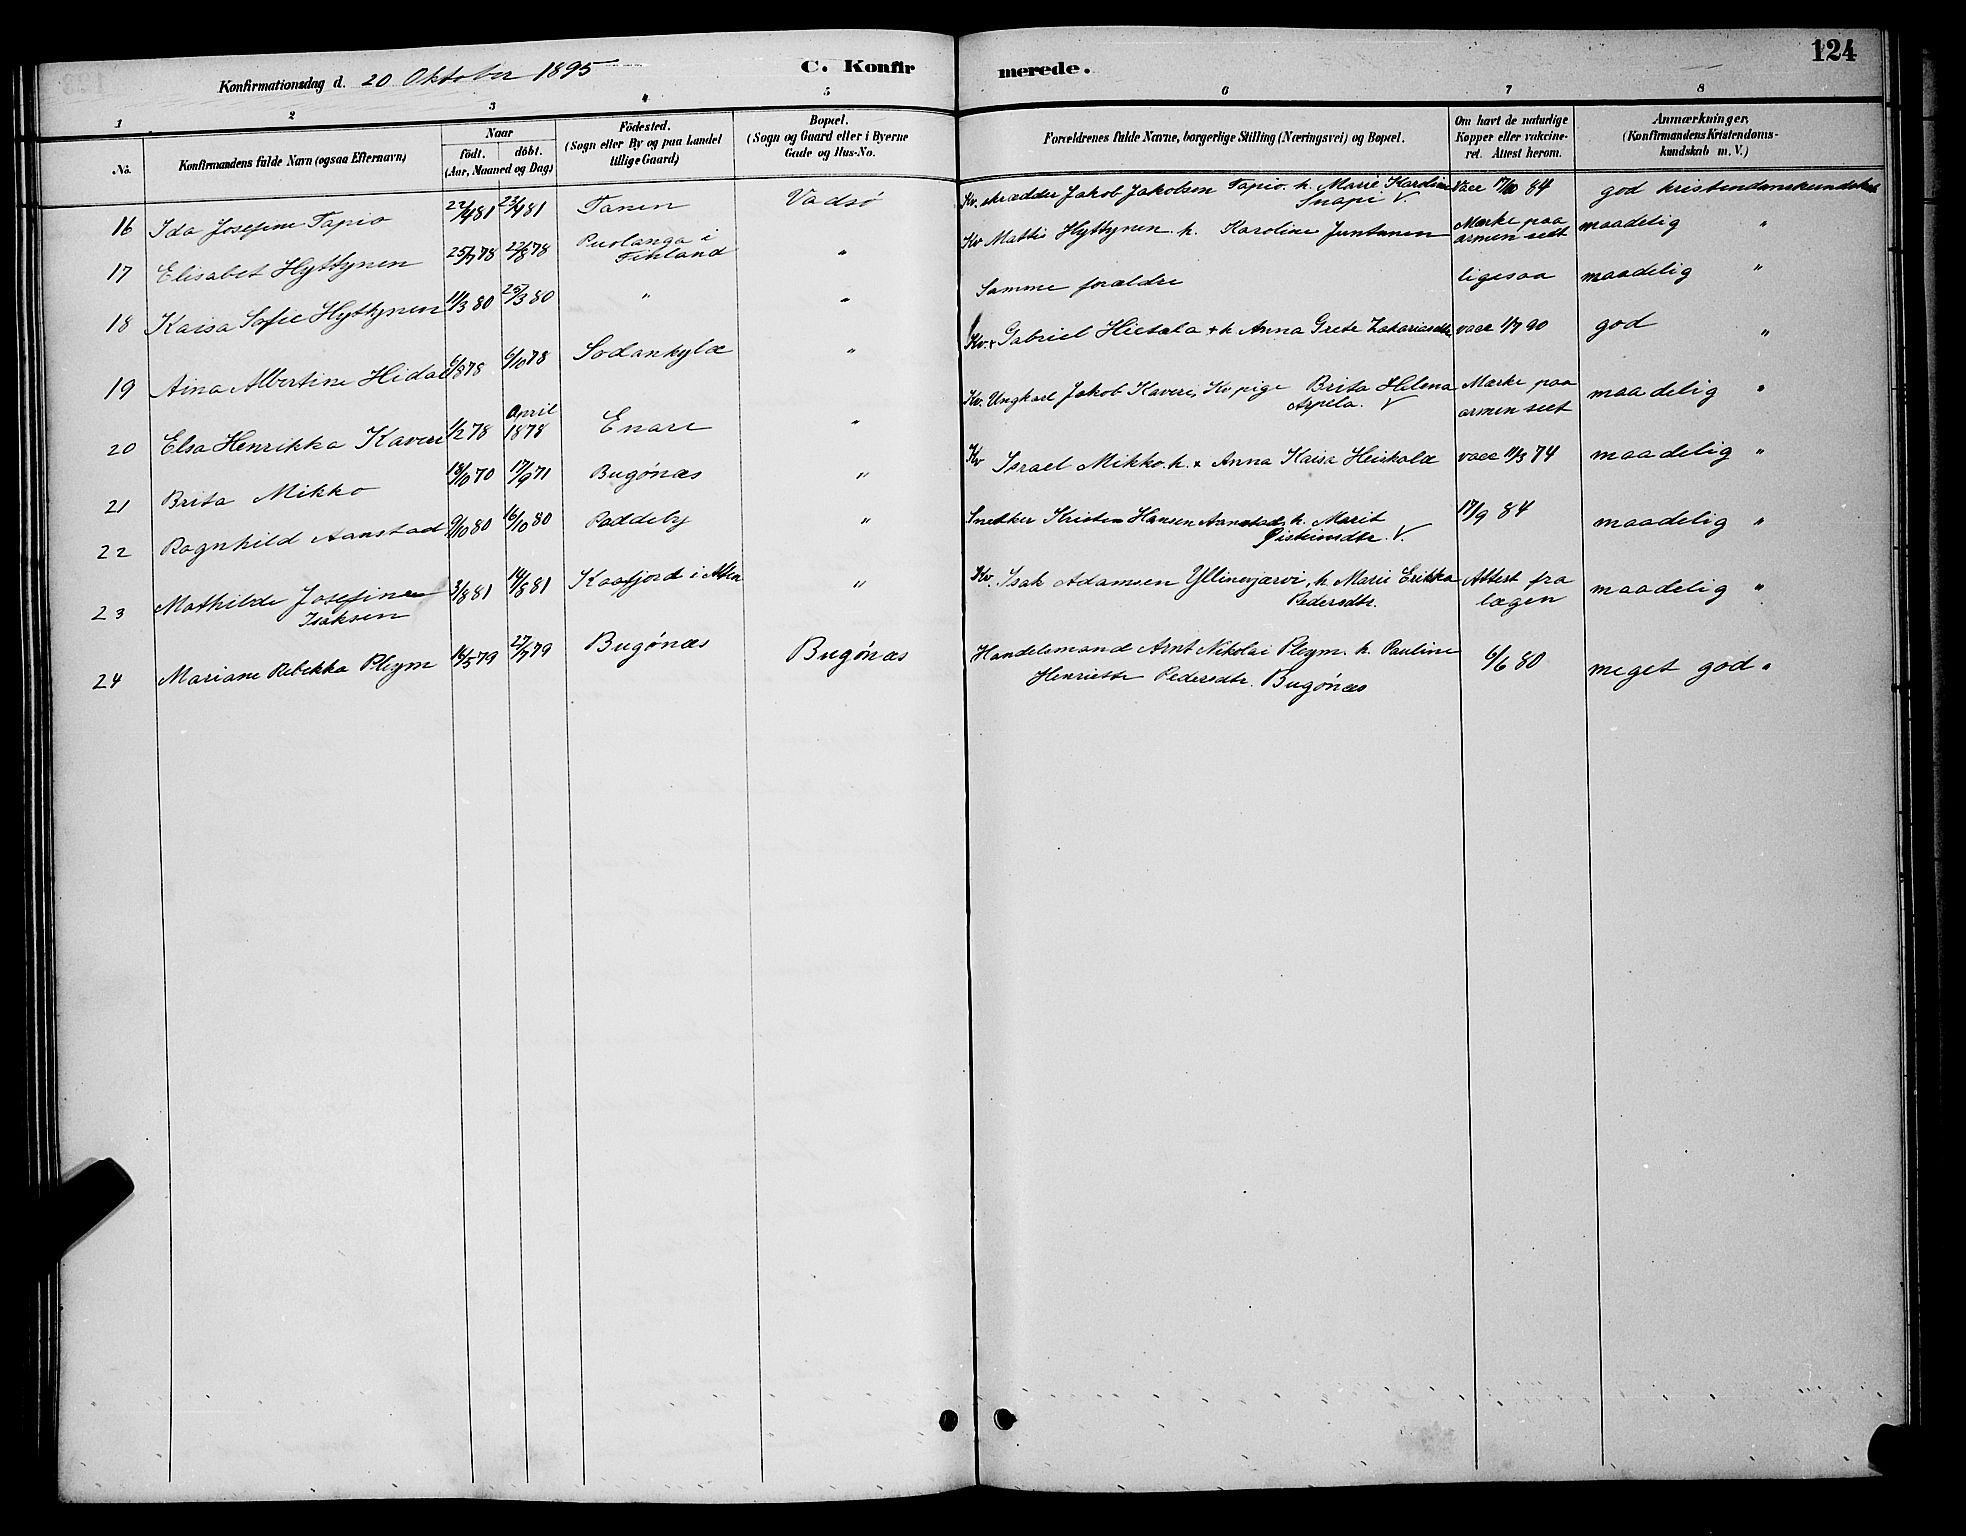 124
Konfirmationsdag d. 20 Oktober 1895
C. Konfir
merede.
1 2 3 4 5 6 7 8
No. Konfirmandens fulde Navn (ogsaa Efternavn) Naar födt. döbt. (Aar, Maaned og Dag) Födested. (Sogn eller By og paa Landet tillige Gaard) Bopæl. (Sogn og Gaard eller i Byerne Gade og Hus-No. Forældrenes fulde Navne, borgerlige Stilling (Næringsvei) og Bopæl. Om havt de naturlige Kopper eller vakcineret. Attest herom. Anmærkninger, (Konfirmandens Kristendomskundskab m. V.)
16 Ida Josefine Tapio 22/4 81 23/4 81 Tanen Vadsö Kv. skrædder Jakob Jakobsen Tapio. h. Marie Karoline Vacc 17/10 84 god kristendomskundskab
Snapi V.
17 Elisabet Hyttynen 25/7 78 22/8 78 Puolanga i Finland " Kv Mattis Hyttynen h. Karoline Juntunen Mærke paa armen seet maadelig "
18 Kaisa Sofie Hyttynen 11/3 80 25/3 80 " " Samme forældre ligesaa maadelig "
19 Aina Albertine Hidal 6/9 78 6/10 78 Sodankylæ " Kv. Gabriel Hietala + h Anna Grete Zakariasdtr. vacc 1/7 90 god "
20 Elsa Henrikka Kaveri 1/2 78 April 1878 Enare " Kv. Ungkarl Jakob Kaveri, Kv pige Brita Helena Mærke paa armen seet maadelig "
Arpela. V
21 Brita Mikko 18/10 70 17/9 71 Bugönæs " Kv Israel Mikko. h. + Anna Kaisa Heiskala vacc 11/3 74 maadelig "
22 Ragnhild Aanstad 9/10 80 16/10 80 Paddeby " Snedker Kristen Hansen Aanstad, h. Marit 17/9 84 maadelig "
Öisteinsdtr. V.
23 Mathilde Josefine Isaksen 3/8 81 14/8 81 Kaafjord i Alten " Kv. Isak Adamsen Yllinenjærvi, h. Marie Erikka Attest fra lægen maadelig "
Pedersdtr.
24 Mariane Rebekka Pleym 16/5 79 27/7 79 Bugönæs Bugönæs Handelsmand Arnt Nikolai Pleym. h. Pauline 6/6 80 meget god "
Henriette Pedersdtr. Bugönæs